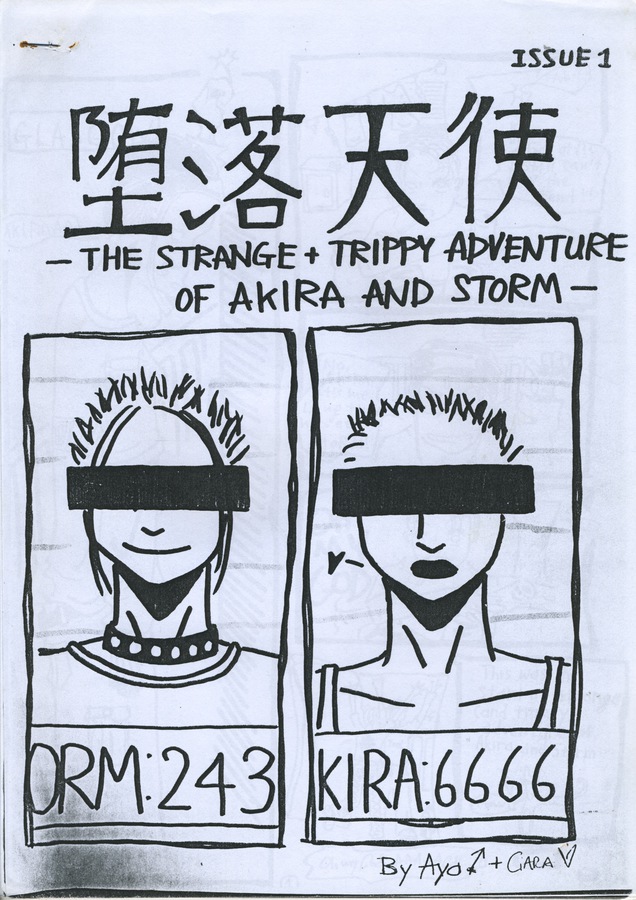 ISSUE 1
堕落天使
— THE STRANGE + TRIPPY ADVENTURE
OF AKIRA AND STORM —
ORM:243
KIRA:6666
By Ayo + GARA